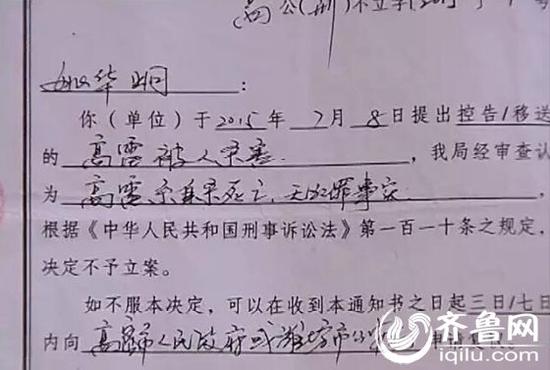 高公(刑)不立字[2015]
姬华明:
你(单位)于2015年7月8日提出控告/移送
的高雷被人杀害,我局经审查认
为高雷系自杀死亡,无犯罪事实,
根据《中华人民共和国刑事诉讼法》第一百一十条之规定,
决定不予立案。
如不服本决定,可以在收到本通知书之日起三日/七日
内向高密市人民政府或潍坊市公安局申请复议。
齐鲁网
iqilu.com